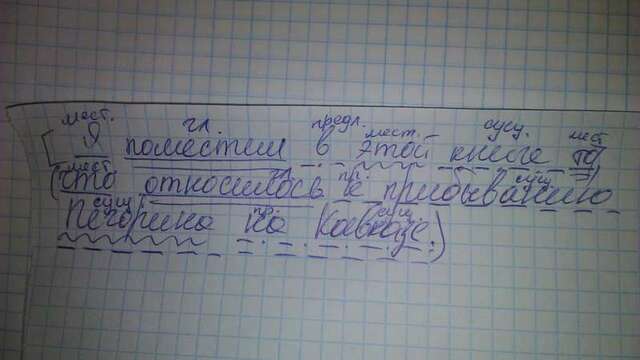 мест. гл. предл. мест. сущ. мест
[Я поместил в этой книге то]
мест гл. пр. сущ
(что относилось к прибыванию
сущ пр. сущ.
Печорина на Кавказе.)